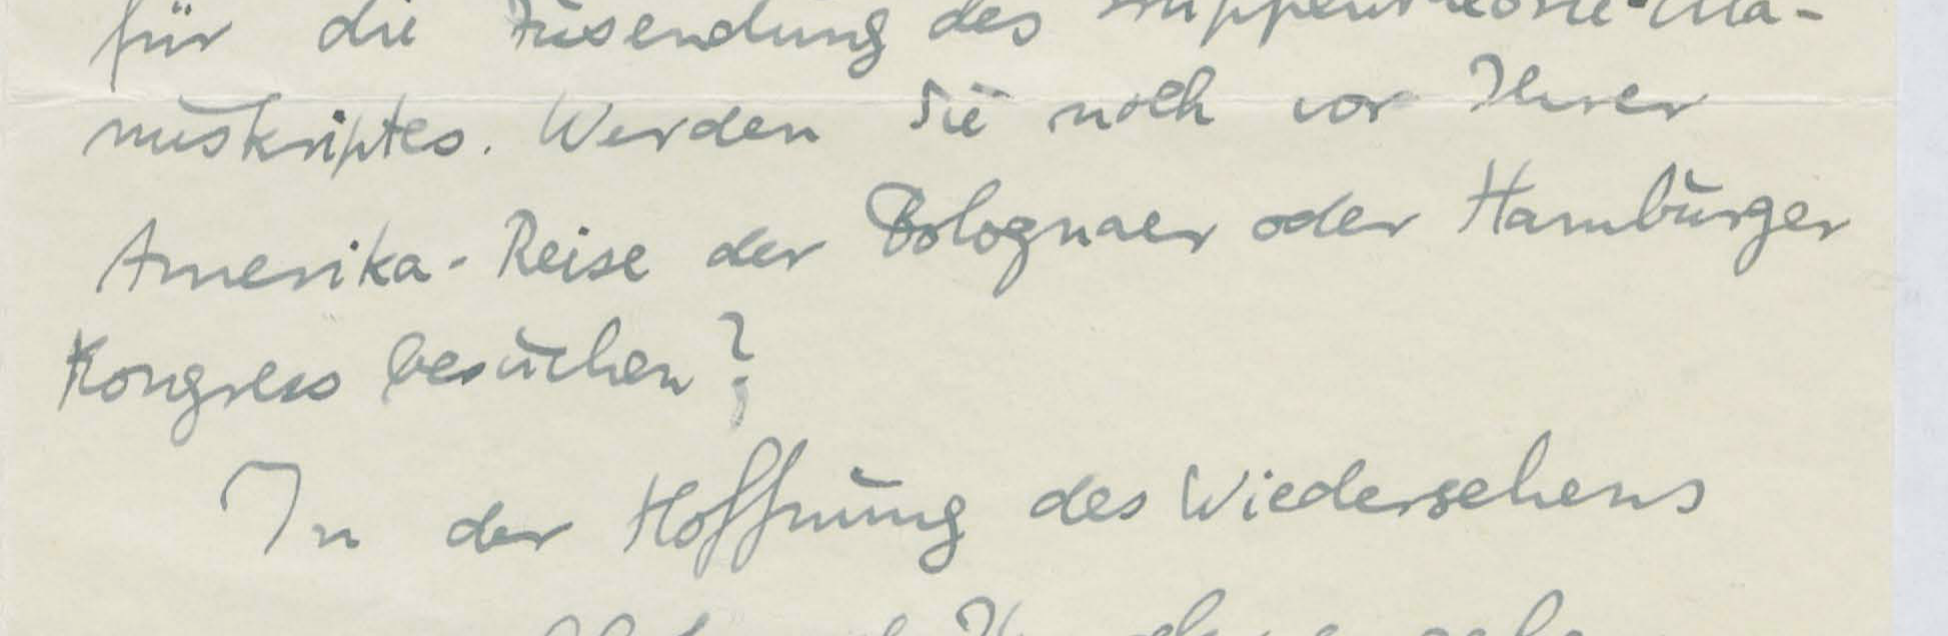 für die Zusendung des Gruppentheorie-Ma-
nuskriptes. Werden Sie noch vor Ihrer
Amerika-Reise der Bolognaer oder Hamburger
Kongress besuchen?
In der Hoffnung des Wiedersehens